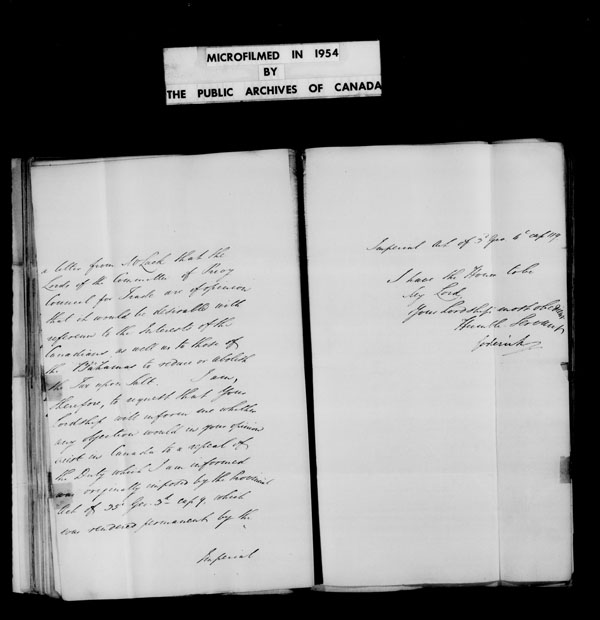 MICROFILMED IN 1954
BY
THE PUBLIC ARCHIVES OF CANADA
a letter from Mr Lack that the
Lords of the Committee of Privy
Council for Trade are of opinion
that it would be desirable with
reference to the Interests of the
Canadians as well as to those of
the Bahamas to reduce or abolish
the Tax upon Salt. I am,
therefore, to request that Your
Lordship will inform me whether
any objection would in your opinion
exist in Canada to a repeal of
the Duty which I am informed
was originally imposed by the Provincial
Act of 35 Geo. 3d cap 9. which
was rendered permanent by the
Imperial
Imperial Act of 3d Geo 4th cap 119
I have the Honor to be
My Lord
Your Lordship's most obedient
Humble Servant
Goderich